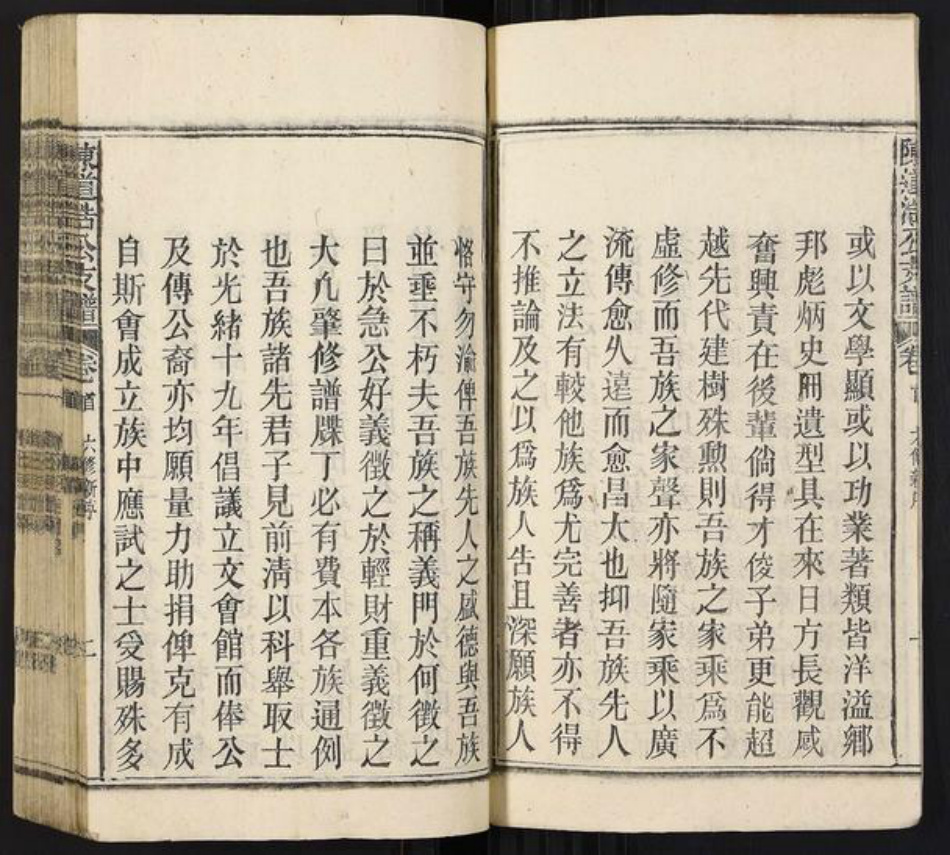 或以文學顯或以功業著類皆洋溢鄉
邦彪炳史冊遺型具在來日方長觀感
奮興責在後輩倘得才俊子弟更能超
越先代建樹殊勲則吾族之家乘爲不
虛修而吾族之家聲亦將隨家乘以廣
流傳愈久遠而愈昌大也抑吾族先人
之立法有較他族爲尤完善者亦不得
不推論及之以爲族人告且深願族人
恪守勿渝俾吾族先人之盛德與吾族
並垂不朽夫吾族之稱義門於何徵之
曰於急公好義徵之於輕財重義徵之
大凢肇修譜牒丁必有費本各族通例
也吾族諸先君子見前淸以科舉取士
於光緒十九年倡議立文會館而俸公
及傳公裔亦均願量力助捐俾克有成
自斯會成立族中應試之士受賜殊多
陳道浩公支譜 卷首 六修新序